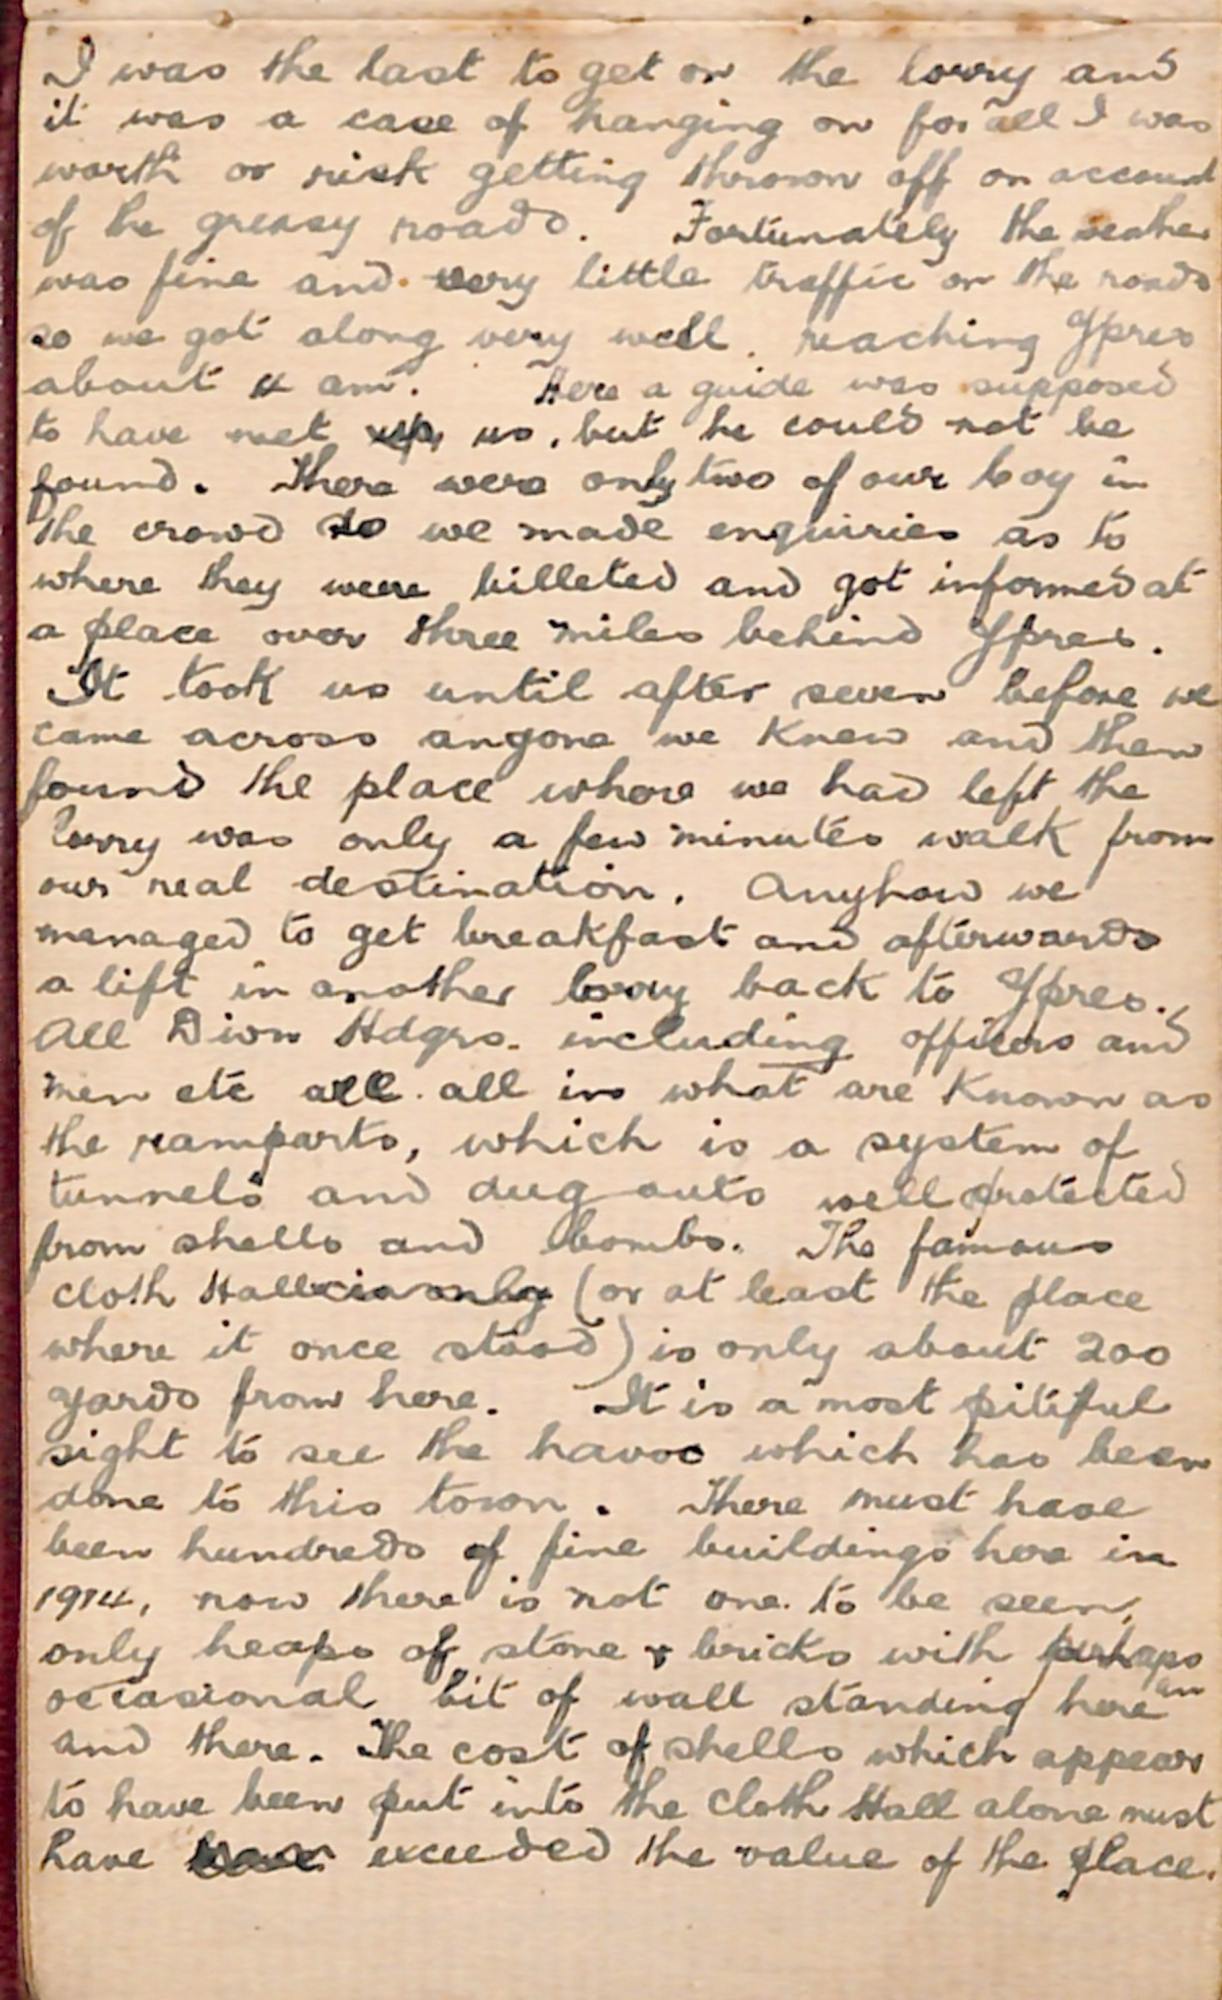 I was the last to get on the lorry and
it was a case of hanging on for all I was
worth or risk getting thrown off on account
of the greasy roads. Fortunately the weather
was fine and very little traffic on the roads
so we got along very well reaching Ypres
about 4 am. Here a guide was supposed
to have met us, but he could not be
found. There were only two of our boy in
the crowd so we made enquiries as to
where they were billeted and got informed at
a place over three miles behind Ypres.
It took us until after seven before we
came across anyone we knew and then
found the place where we had left the
lorry was only a few minutes walk from
our real destination. Anyhow we
managed to get breakfast and afterwards
a lift in another lorry back to Ypres.
All Divn Hdqrs. including officers and
men etc all all in what are known as
the ramparts, which is a system of
tunnels and dug outs well protected
from shells and bombs. The famous
Cloth Hall is only (or at least the place
where it once stood) is only about 200
yards from here. It is a most pitiful
sight to see the havoc which has been
done to this town. There must have
been hundreds of fine buildings here in
1914, now there is not one to be seen,
only heaps of stone & bricks with perhaps an
occasional bit of wall standing here
and there. The cost of shells which appears
to have been put into the Cloth Hall alone must
have exceeded the value of the place.